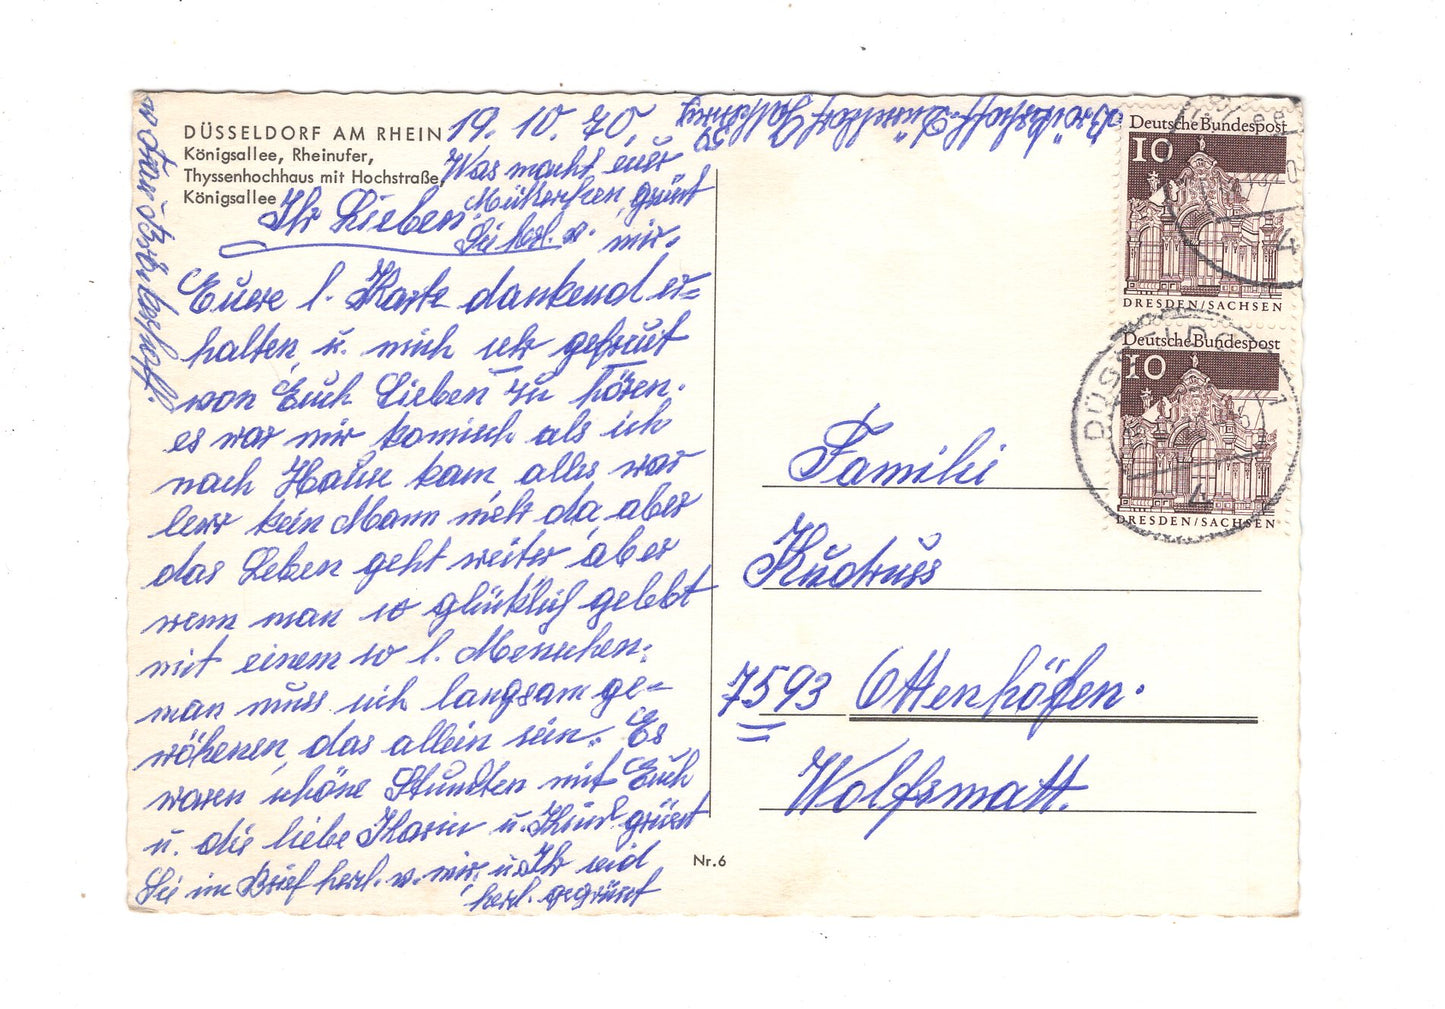 DÜSSELDORF AM RHEIN
Königsallee, Rheinufer,
Thyssenhochhaus mit Hochstraße,
Königsallee
19. 10. 70.
Was macht euer
Mütterchen, grüßt
Sie herl. v. mir.
Ihr Lieben!
Euere l. Karte dankend er=
halten, u. mich sehr gefreut
von Euch Lieben zu hören.
es war mir komisch als ich
nach Hause kam alles war
leer kein Mann mehr da, aber
das Leben geht weiter, aber
wenn man so glücklich gelebt
mit einem so l. Menschen.
man muss sich langsam ge=
wöhenen, das allein sein. Es
waren schöne Stunden mit Euch
u. die liebe Karin u. Kind grüsst
Sie im Brief herl. v. mir. u. Ihr seid
herl. gegrüsst
v. Frau
Nr. 6
Deutsche Bundespost
10
DRESDEN/SACHSEN
Deutsche Bundespost
10
DRESDEN/SACHSEN
DÜSSELDORF
4
Familie
Kudruss
7593 Ottenhöfen.
Wolfsmatt.